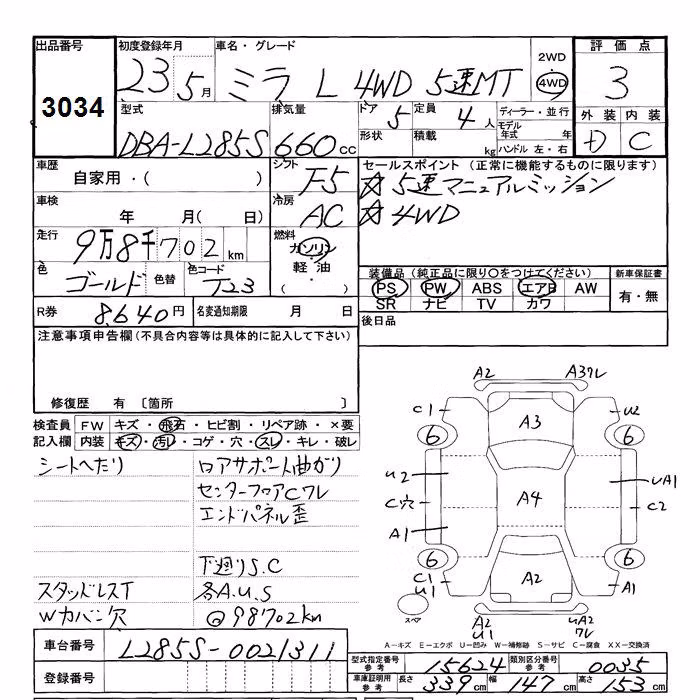 出品番号 初度登録年月 車名・グレード 2WD 4WD 評価点
3034 23 5月 ミラ L 4WD 5速MT 3
型式 排気量 ドア 5 定員 4人 ディーラー・並行 外装 内装
DBA-L285S 660cc 形状 積載 kg モデル年式 年 ハンドル 左・右 D C
車歴 シフト セールスポイント (正常に機能するものに限ります)
自家用・( ) F5 ☆5速マニュアルミッション
車検 冷房 ☆4WD
年 月(日) AC
走行 9万8千702km 燃料
ガソリン・軽油・( )
色 ゴールド 色替 色コード T23
装備品(純正品に限り○をつけてください) 新車保証書
PS PW ABS エアB AW 有・無
SR ナビ TV カワ
R券 8,640円 名変通知期限 月 日 後日品
注意事項申告欄(不具合内容等は具体的に記入して下さい)
修復歴 有 〔箇所 〕
検査員記入欄 FW キズ・飛石・ヒビ割・リペア跡・×要
内装 キズ・汚レ・コゲ・穴・スレ・キレ・破レ
シートへたり ロアサポート曲がり
センターフロアCワレ
エンドパネル歪
下廻りS.C
スタッドレスT 各A.U.S
Wカバン穴 @98702km
A2 A3ワレ
C1 A3 U2
6 6
U2 UA1
C穴 A4 C2
A1
6 6
C1 U1 A2 A1
スペア A2 U1 UA2 ワレ
A-キズ E-エクボ U-凹み W-補修跡 S-サビ C-腐食 XX-交換済
車台番号 L285S-0021311
登録番号
型式指定番号 参考 15624 類別区分番号 参考 0035
車庫証明用 参考 長さ 339cm 幅 147cm 高さ 153cm